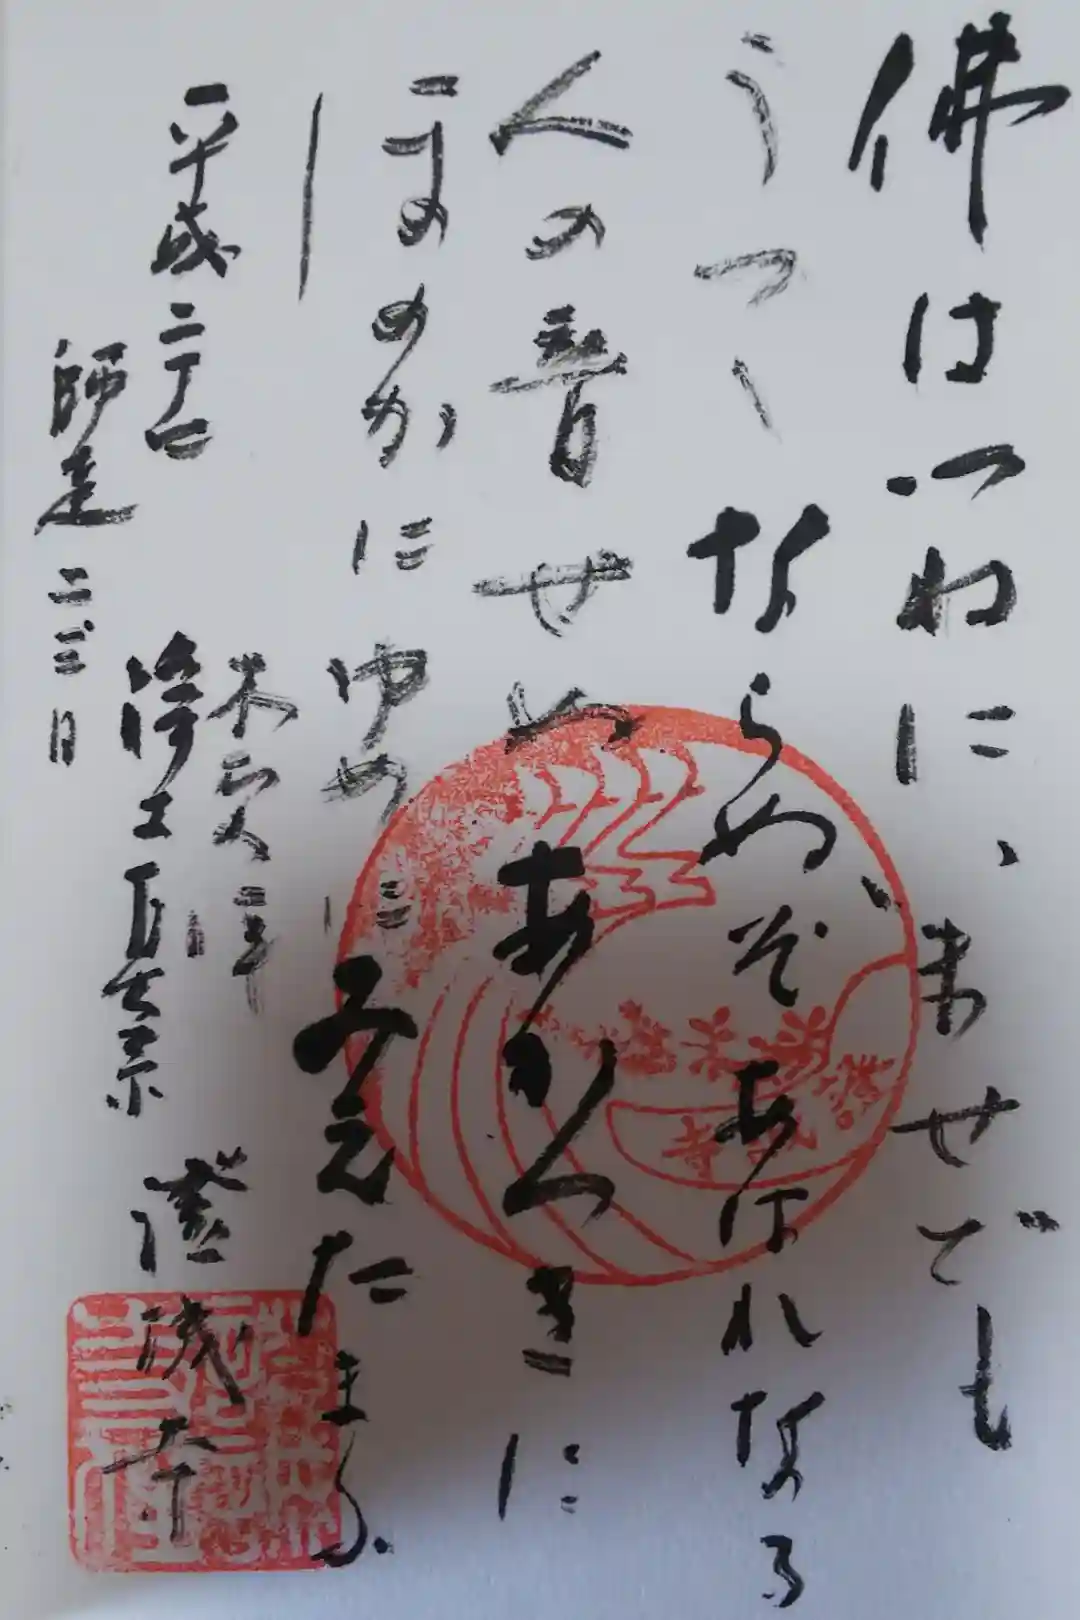 佛はつねにいませども
うつゝならぬぞあはれなる
人の音せぬあかつきに
ほのかにゆめにみえたまふ
平成二十二
師走二三日
浄土真宗
證誠寺
證誠寺